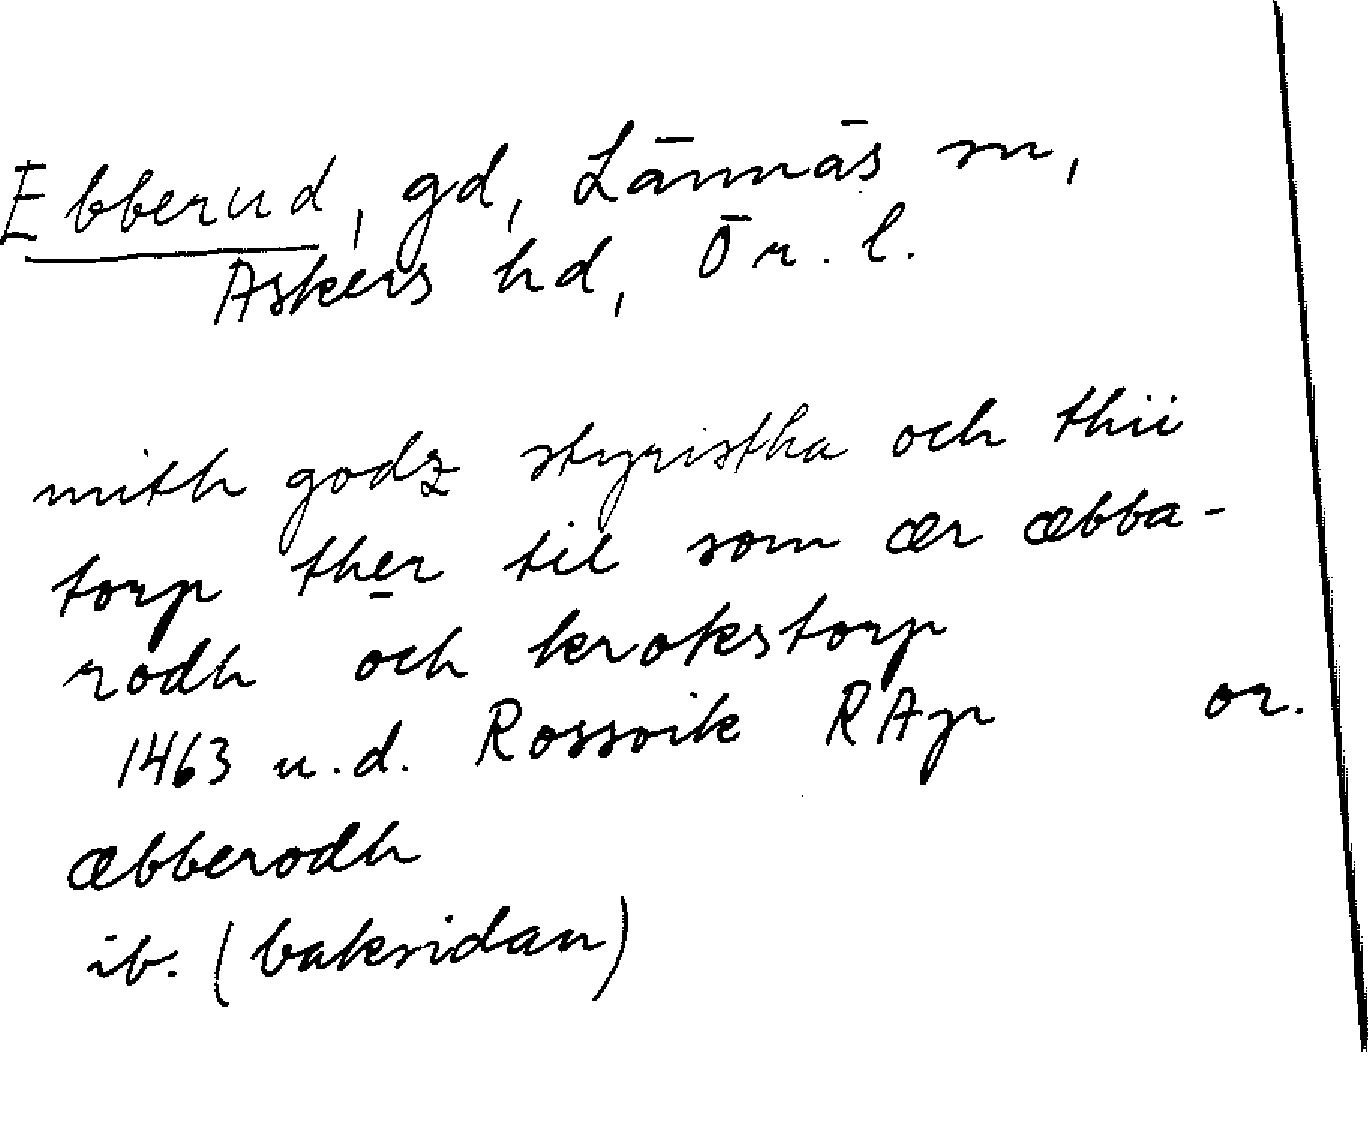 Ebberud, gd, Lännäs sn,
Askers hd, Ör. l.
mith godz styristha och thii
torp ther til som ær æbba-
rodh och krokstorp
1463 u.d. Rossvik RAp or.
æbberodh
ib. (baksidan)